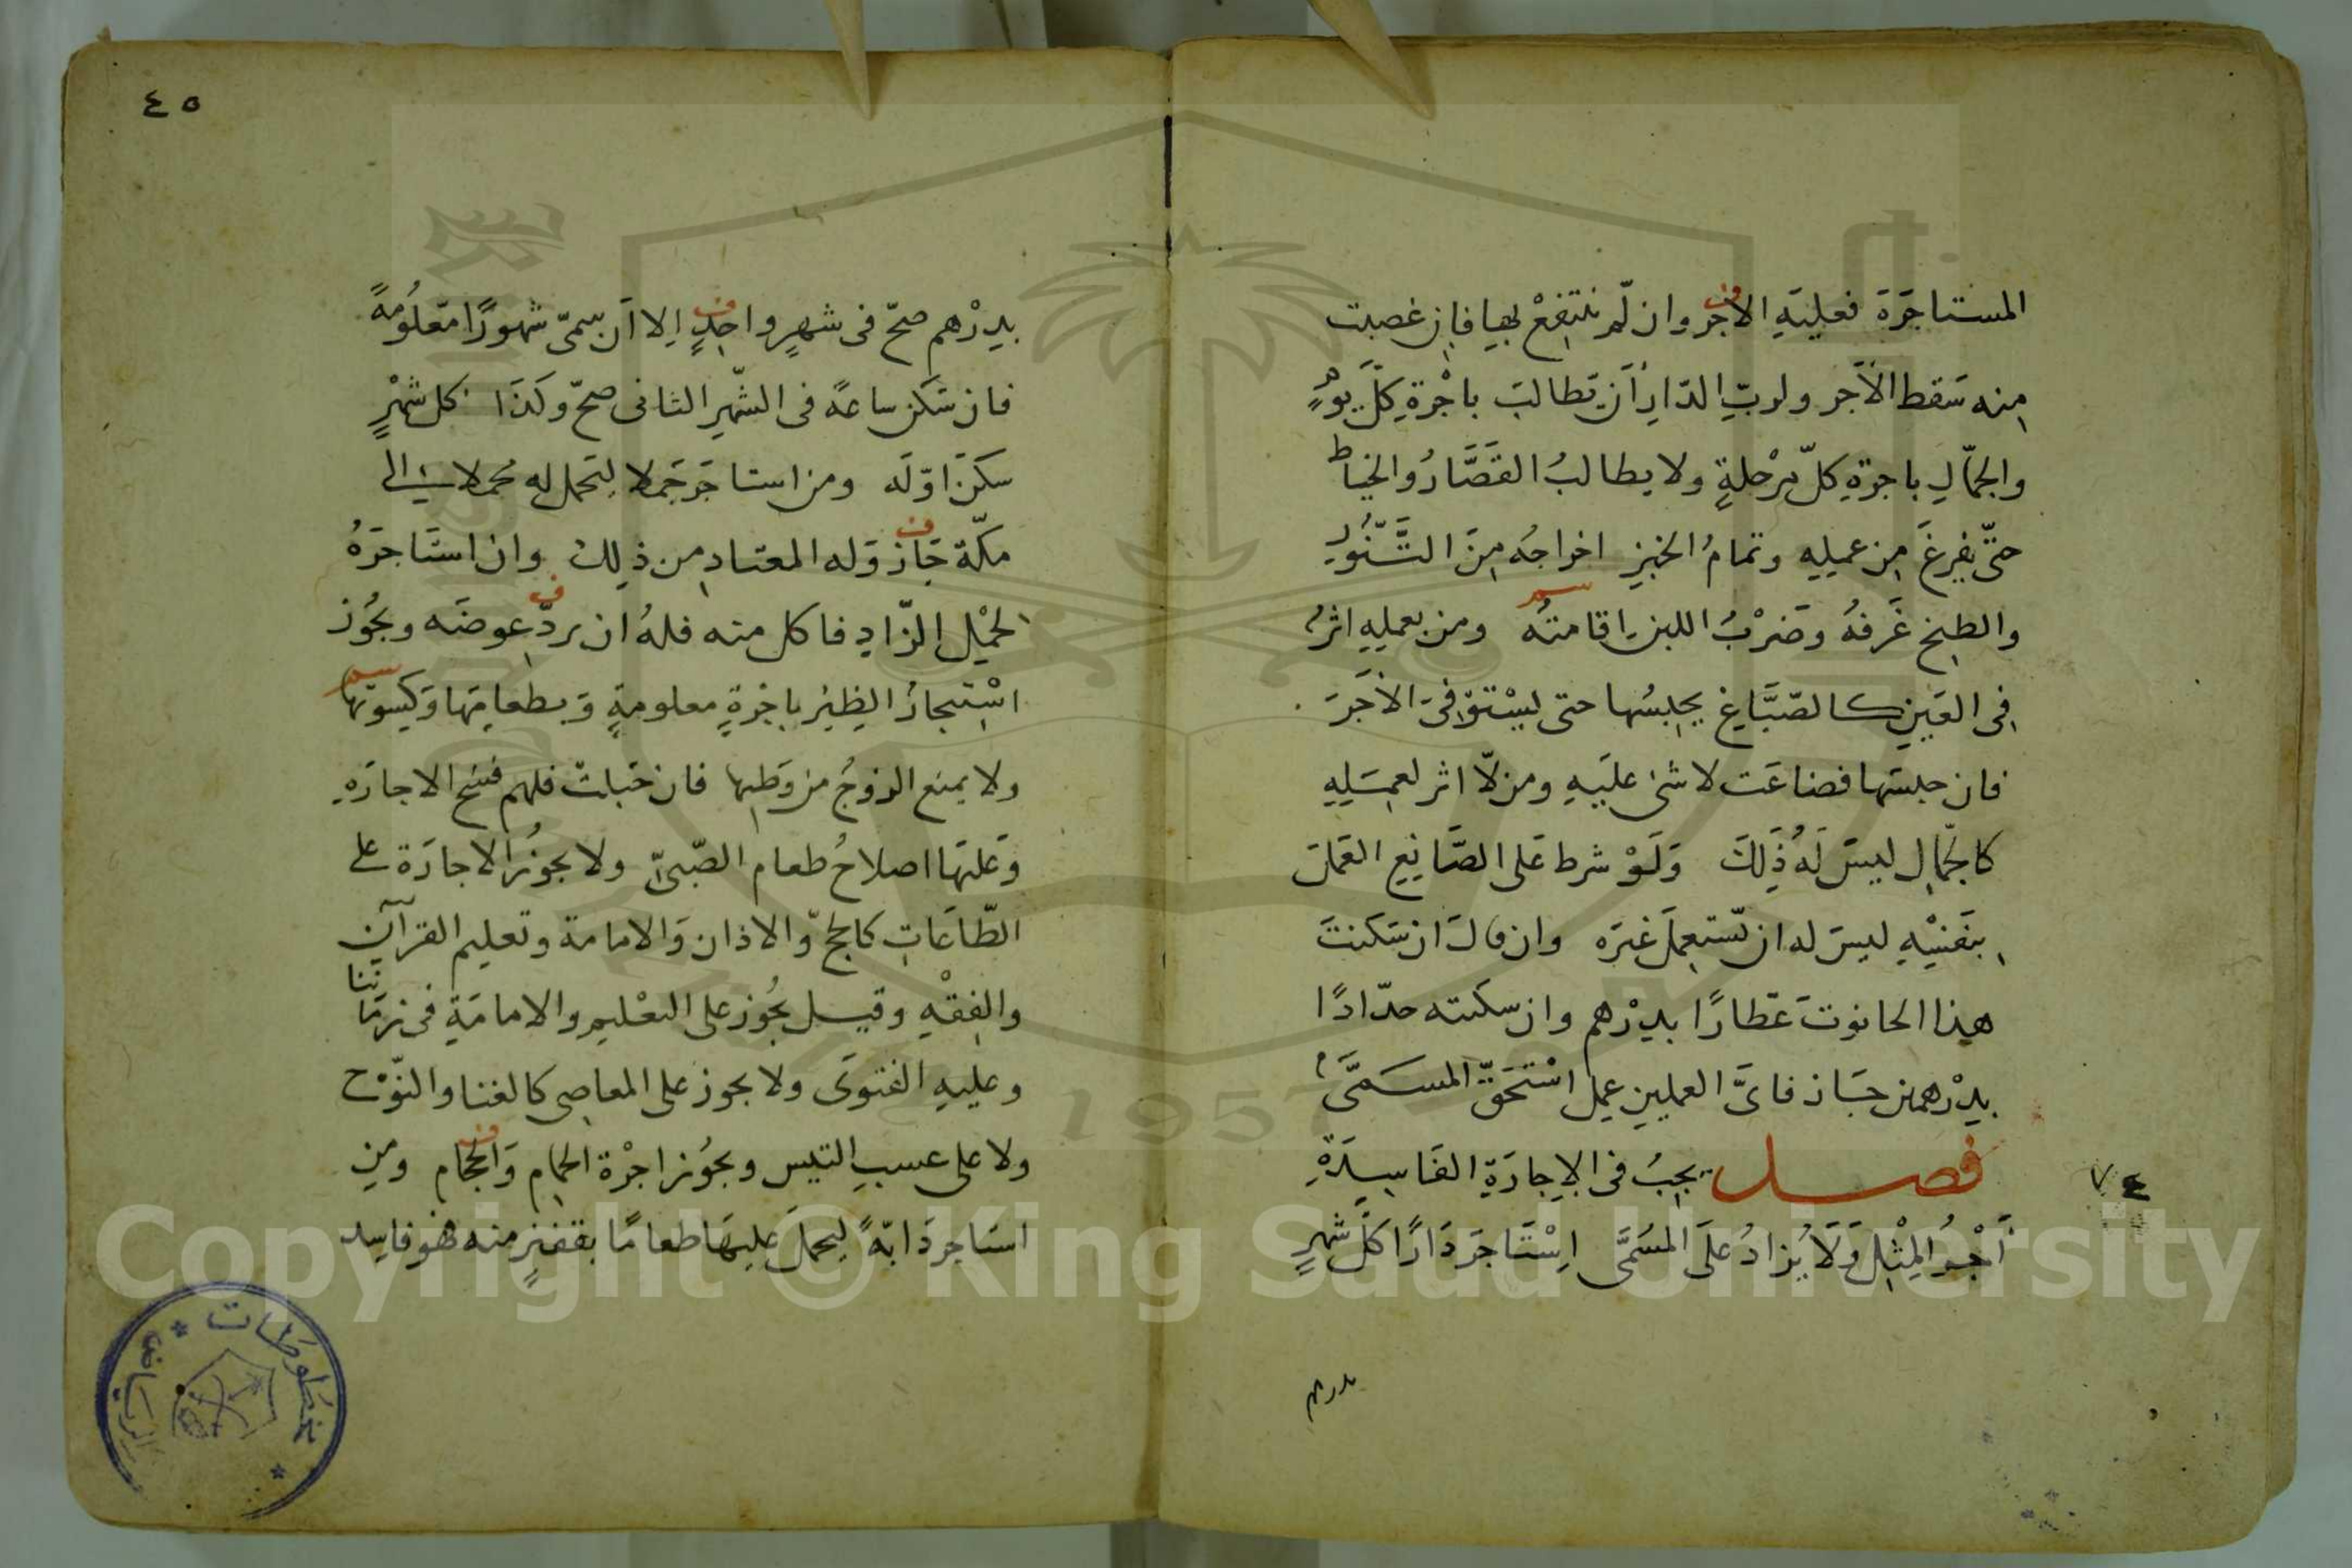 المستاجَرَةَ فعليَهِ الاجر وان لّم ينتفِعْ بهِا فاِن غصبت
مِنه سَقط الاَجر ولربِّ الدّارِ اَن يَطالبَ باجْرةِ كلّ يومٍ
والجمّالِ باجرةِ كلّ مرْحلةٍ ولا يطالبُ القَصَّارُ والخياط
حتّى يفرغَ مِن عملِهِ وتمامُ الخبزِ اخراجُه مِنَ التَّنُّورِ
والطبخِ غَرفهُ وضَرْبُ اللبنِ اقامتُه ومن بعملِهِ اثرٌ
فِى العَينِ كالصّبَّاغِ يحبِسُها حتى يسْتوْفىَ الاَجَرَ
فان حبسَها فضاعَت لا شئ عليَهِ ومن لّا اثر لعمَلِهِ
كالجمّالِ ليسَ لَهُ ذَلِكَ وَلَوْ شرط عَلى الصَّانِعِ العَمَلَ
بِنَفسِهِ ليسَ له ان يّستعِملَ غيَره وان قالَ ان سَكنتَ
هذِا الحانوتَ عَطّارًا بدِرْهم وان سكنته حدّادًا
بدِرْهمين جَاز فاىَّ العملينِ عمِل اسْتَحَقّ المسَمَّى
فصل يجِبُ فى الاِجارَةِ الفَاسِدَةِ
٧٤
اَجْرُ المِثْلِ وَلَا يُزادُ علَى المسُمَّى اِسْتَاجَر دَارًا كلّ شهرٍ
بدرهم
٤٥
بدِرْهم صحّ فى شهرٍ واحِدٍ اِلا اَن يسمىّ شهورًا مّعلوُمةً
فان سَكن ساعةً فى الشّهرِ الثانى صحّ وكَذَا كل شهْرٍ
سكَنَ اوّلَه ومن استاجَر جَملا ليَحمل له محملا الى
مكّة جَاز وَله المعتادِ من ذلِك وان استَاجَرَهُ
لحمْل الزّادِ فاكل منه فلهُ ان يردّ عِوضَه ويجُوز
اسْتيِجارُ الظِيئرُ باجْرةٍ معلومةٍ وَبطعامِهَا وَكِسوتهَا
ولا يمنع الزوجُ من وَطئِها فان حَبلتْ فلهم فسخ الاجارَةِ
وَعليَها اصلاحُ طعام الصّبىّ ولا يجوُز الاجارَة على
الطّاعَاتِ كالحجّ والاذان وَالامامة وتعليم القرآن
والفِقْهِ وقيل يجُوز على التعْليمِ والامامَةِ فى زمَاننا
وعليهِ الفتوىَ ولا يجوز على المعاصِى كالغنا والنّوْح
ولا على عسبِ التيس ويجوُز اجرْة الحمامِ وَالحجام ومنِ
استَاجر دَابّةً لِيحملَ عليهَا طعامًا بقفيزٍ منه فهُو فاسِد
مخطوطات
الرياض
Copyright © King Saud University
1957